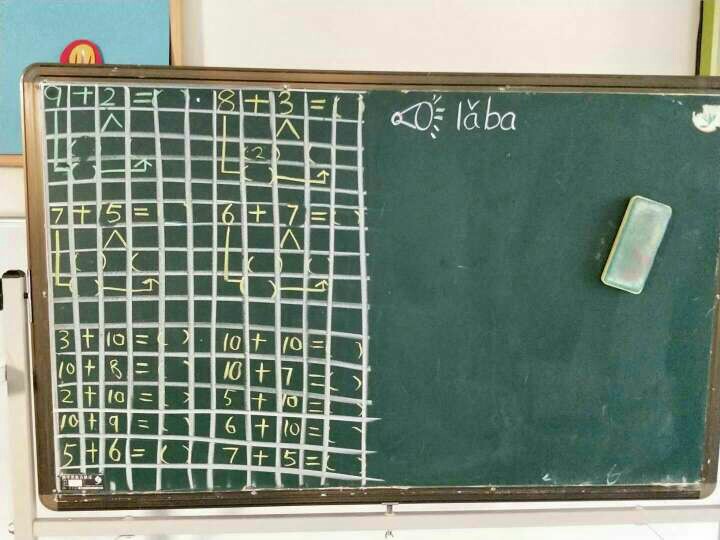 9 + 2 = ( ) 8 + 3 = ( )
( ) ( (2) (
( ) ( )
7 + 5 = 6 + 7 = ( )
( ) ( ( ) ( )
( ) ( )
3 + 10 = ( ) 10 + 10 = ( )
10 + 8 = ( ) 10 + 7 = ( )
2 + 10 = ( ) 5 + 10 = ( )
10 + 9 = ( ) 6 + 10 = ( )
5 + 6 = ( ) 7 + 5 = ( )
lǎba